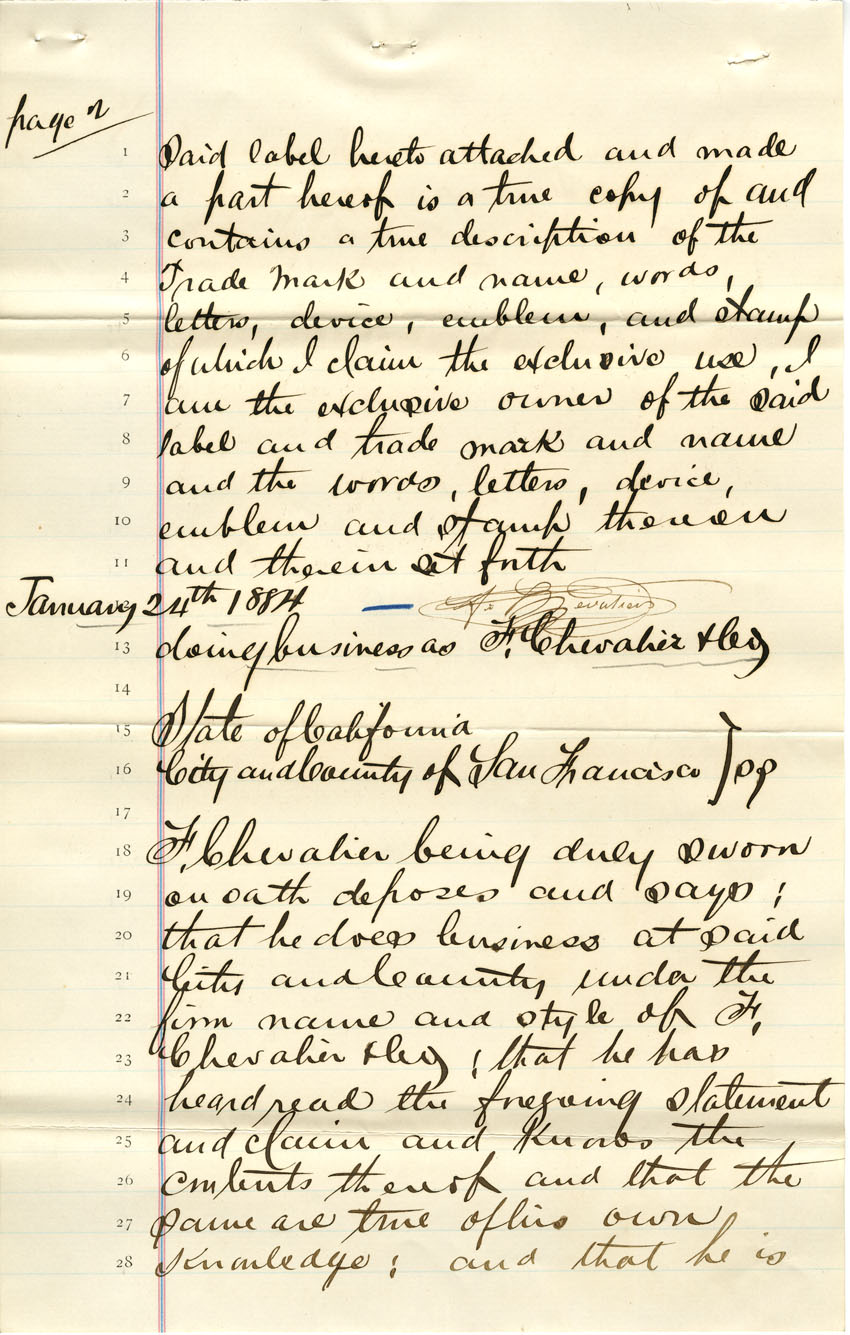 page 2
1 Said label hereto attached and made
2 a part hereof is a true copy of and
3 contains a true description of the
4 Trade Mark and name, words,
5 letters, device, emblem, and stamp
6 of which I claim the exclusive use, I
7 am the exclusive owner of the said
8 label and trade mark and name
9 and the words, letters, device,
10 emblem and stamp thereon
11 and therein set forth
January 24th 1884 — F. Chevalier
13 doing business as F. Chevalier & Co
14
15 State of California
16 City and County of San Francisco } ss
17
18 F. Chevalier being duly sworn
19 on oath deposes and says;
20 that he does business at said
21 City and County under the
22 firm name and style of F.
23 Chevalier & Co; that he has
24 heard read the foregoing statement
25 and claim and knows the
26 contents thereof and that the
27 same are true of his own
28 knowledge; and that he is